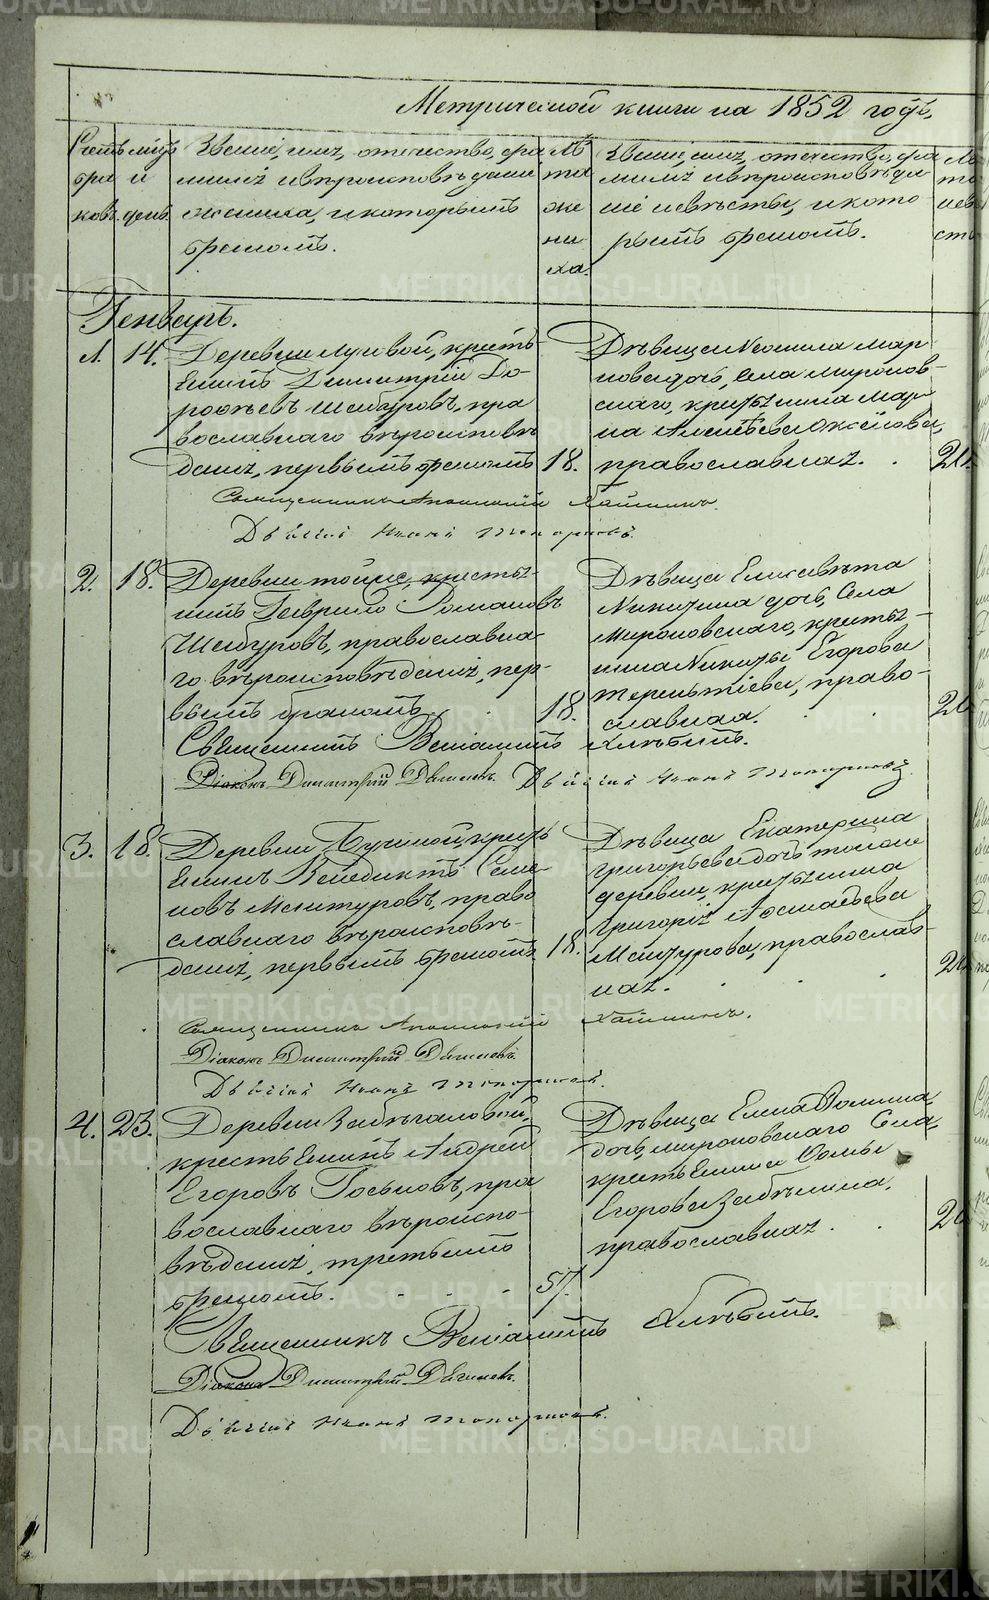 Метрической книги на 1852 годъ,
Счетъ бра ковъ.
мѣцъ и день.
Званіе, имя, отечество, фа
милія и вѣроисповѣдани
жениха, и которымъ
бракомъ.
Лѣ
та
же
ни
ха.
Званіе, имя, отечество, фа
милія и вѣроисповѣда
ніе невѣсты, и кото
рымъ бракомъ.
Лѣ
та
невѣ
сты
Генварь.
1. 14.
Деревни Луговой, кресть
янинъ Димитрій До
рофѣевъ Шабуровъ, пра
вославнаго вѣроисповѣ
данія, первымъ бракомъ
18.
Дѣвица Неонила Мар
кова дочь, Села Миронов-
скаго, крестьянина Мар
ка Алексѣева
православная.
20.
Священникъ Хаминъ.
Дьячекъ Иванъ Топорковъ.
2. 18.
Деревни тойже, крестья-
нинъ Гавріилъ Романовъ
Шабуровъ, православна
го вѣроисповѣданія, пер-
вымъ бракомъ
18.
Дѣвица Елисавета
Никитина дочь, Села
Мироновскаго, крестья-
нина Никиты Егорова
Терентіева, право-
славная.
20
Священникъ Веніаминъ Хлѣбинъ.
Діаконъ Димитрій Двининъ. Дьячекъ Иванъ Топорковъ
3. 18.
Деревни Бучиной, кресть
янинъ Венедиктъ Семе
новъ Мантуровъ, право
славнаго вѣроисповѣ-
данія, первымъ бракомъ
18.
Дѣвица Екатерина
Григорьева дочь тойже
деревни, крестьянина
Григорія
Мантурова, православ-
ная.
20
Священникъ Хаминъ.
Діаконъ Димитрій Двининъ.
Дьячекъ Иванъ Топорковъ.
4. 23.
Деревни Забѣгаловой,
крестьянинъ Андрей
Егоровъ Госьковъ, пра
вославнаго вѣроиспо-
вѣданія, третьимъ
бракомъ.
57.
Дѣвица Елена Фомина
дочь, Мироновскаго Села,
крестьянина Фомы
Егорова Забѣлина,
православная.
20
Священникъ Веніаминъ Хлѣбинъ.
Діаконъ Димитрій Двининъ.
Дьячекъ Иванъ Топорковъ.
METRIKI.GASO-URAL.RU